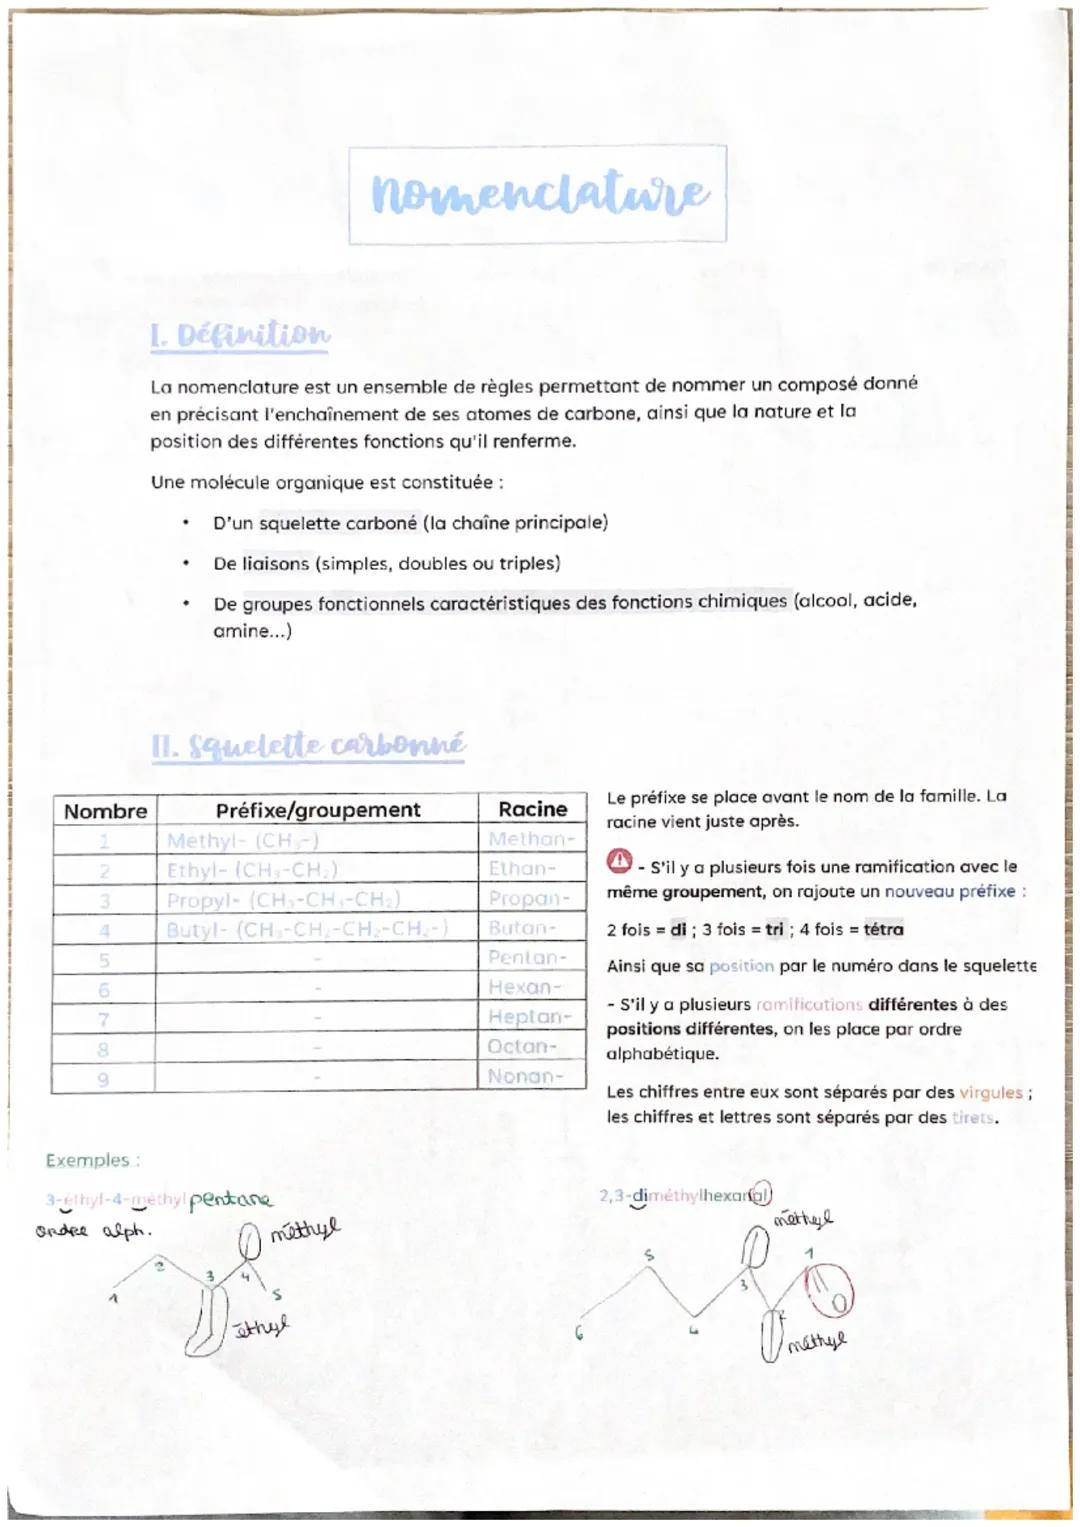 nomenclature
I. Définition
La nomenclature est un ensemble de règles permettant de nommer un composé donné
en précisant l'enchaînement de ses atomes de carbone, ainsi que la nature et la
position des différentes fonctions qu'il renferme.
Une molécule organique est constituée :
• D'un squelette carboné (la chaîne principale)
• De liaisons (simples, doubles ou triples)
• De groupes fonctionnels caractéristiques des fonctions chimiques (alcool, acide,
amine...)
II. Squelette carbonné
Nombre Préfixe/groupement Racine
1 Methyl- (CH₃-) Methan-
2 Ethyl- (CH₃-CH₂) Ethan-
3 Propyl- (CH₃-CH₂-CH₂) Propan-
4 Butyl- (CH₃-CH₂-CH₂-CH₂-) Butan-
5 - Pentan-
6 - Hexan-
7 - Heptan-
8 - Octan-
9 - Nonan-
Le préfixe se place avant le nom de la famille. La
racine vient juste après.
- S'il y a plusieurs fois une ramification avec le
même groupement, on rajoute un nouveau préfixe :
2 fois = di ; 3 fois = tri ; 4 fois = tétra
Ainsi que sa position par le numéro dans le squelette
- S'il y a plusieurs ramifications différentes à des
positions différentes, on les place par ordre
alphabétique.
Les chiffres entre eux sont séparés par des virgules ;
les chiffres et lettres sont séparés par des tirets.
Exemples :
3-éthyl-4-méthyl pentane
ordre alph.
méthyl
1 2 3 4 5
éthyl
2,3-diméthylhexanal
méthyl
6 5 4 3 2 1
O
méthyl